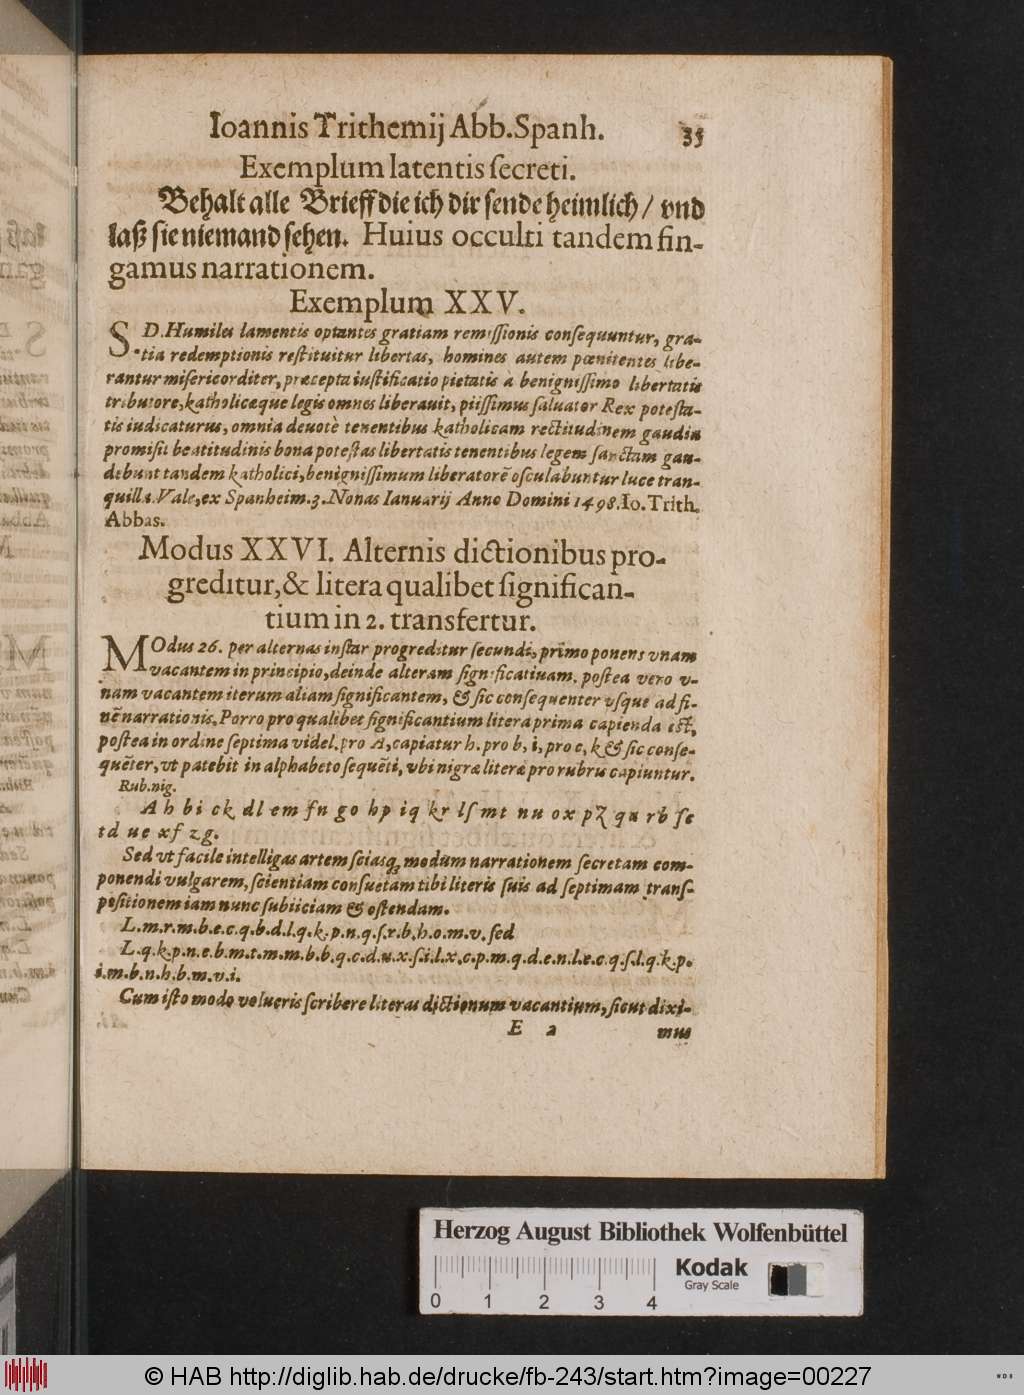 Ioannis Trithemij Abb. Spanh. 35
Exemplum latentis ſecreti.
Behalt alle Brieff die ich dir ſende heimlich / vnd
laß ſie niemand ſehen. Huius occulti tandem fin-
gamus narrationem.
Exemplum XXV.
S D. Humiles lamentis optantes gratiam remiſſionis conſequuntur, gra-
tia redemptionis reſtituitur libertas, homines autem pœnitentes libe-
rantur miſericorditer, præcepta iuſtificatio pietatis à benigniſſimo libertatis
tributore, katholicæque legis omnes liberauit, piiſſimus ſaluator Rex poteſta-
tis iudicaturus, omnia deuotè tenentibus katholicam rectitudinem gaudia
promiſit beatitudinis bona poteſtas libertatis tenentibus legem ſanctam gau-
debunt tandem katholici, benigniſſimum liberatorē oſculabuntur luce tran-
quilla. Vale, ex Spanheim. 3. Nonas Ianuarij Anno Domini 1498. Io. Trith.
Abbas.
Modus XXVI. Alternis dictionibus pro-
greditur, & litera qualibet ſignifican-
tium in 2. transfertur.
MOdus 26. per alternas inſtar progreditur ſecundi, primo ponens vnam
vacantem in principio, deinde alteram ſignificatiuam, poſtea vero v-
nam vacantem iterum aliam ſignificantem, & ſic conſequenter vſque ad fi-
nē narrationis. Porro pro qualibet ſignificantium litera prima capienda eſt,
poſtea in ordine ſeptima videl. pro A, capiatur h. pro b, i, pro c, k & ſic conſe-
quēter, vt patebit in alphabeto ſequēti, vbi nigræ literæ pro rubris capiuntur.
Rub. nig.
A h b i c k d l e m f n g o h p i q k r l ſ m t n u o x p z q u r b ſ e
t d u e x f z g.
Sed vt facile intelligas artem ſciasq; modum narrationem ſecretam com-
ponendi vulgarem, ſcientiam conſuetam tibi literis ſuis ad ſeptimam tranſ-
poſitionem iam nunc ſubiiciam & oſtendam.
L. m. r. m. b. e. c. q. b. d. l. q. k. p. n. q. ſ. r. b. h. o. m. v. ſed
L. q. k. p. n. e. b. m. t. m. m. b. b. q. c. d. u. x. ſ. i. l. x. c. p. m. q. d. e. n. l. e. c. q. ſ. l. q. k. p.
i. m. b. n. h. b. m. v. i.
Cum iſto modo volueris ſcribere literas dictionum vacantium, ſicut dixi-
E 2 mus
Herzog August Bibliothek Wolfenbüttel
Kodak
Gray Scale
0 1 2 3 4
© HAB http://diglib.hab.de/drucke/fb-243/start.htm?image=00227